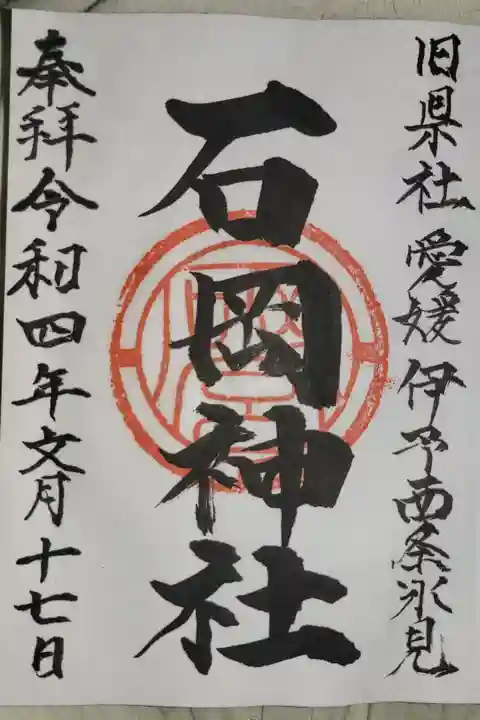 旧県社 愛媛伊予西条氷見
石岡神社
奉拝令和四年文月十七日